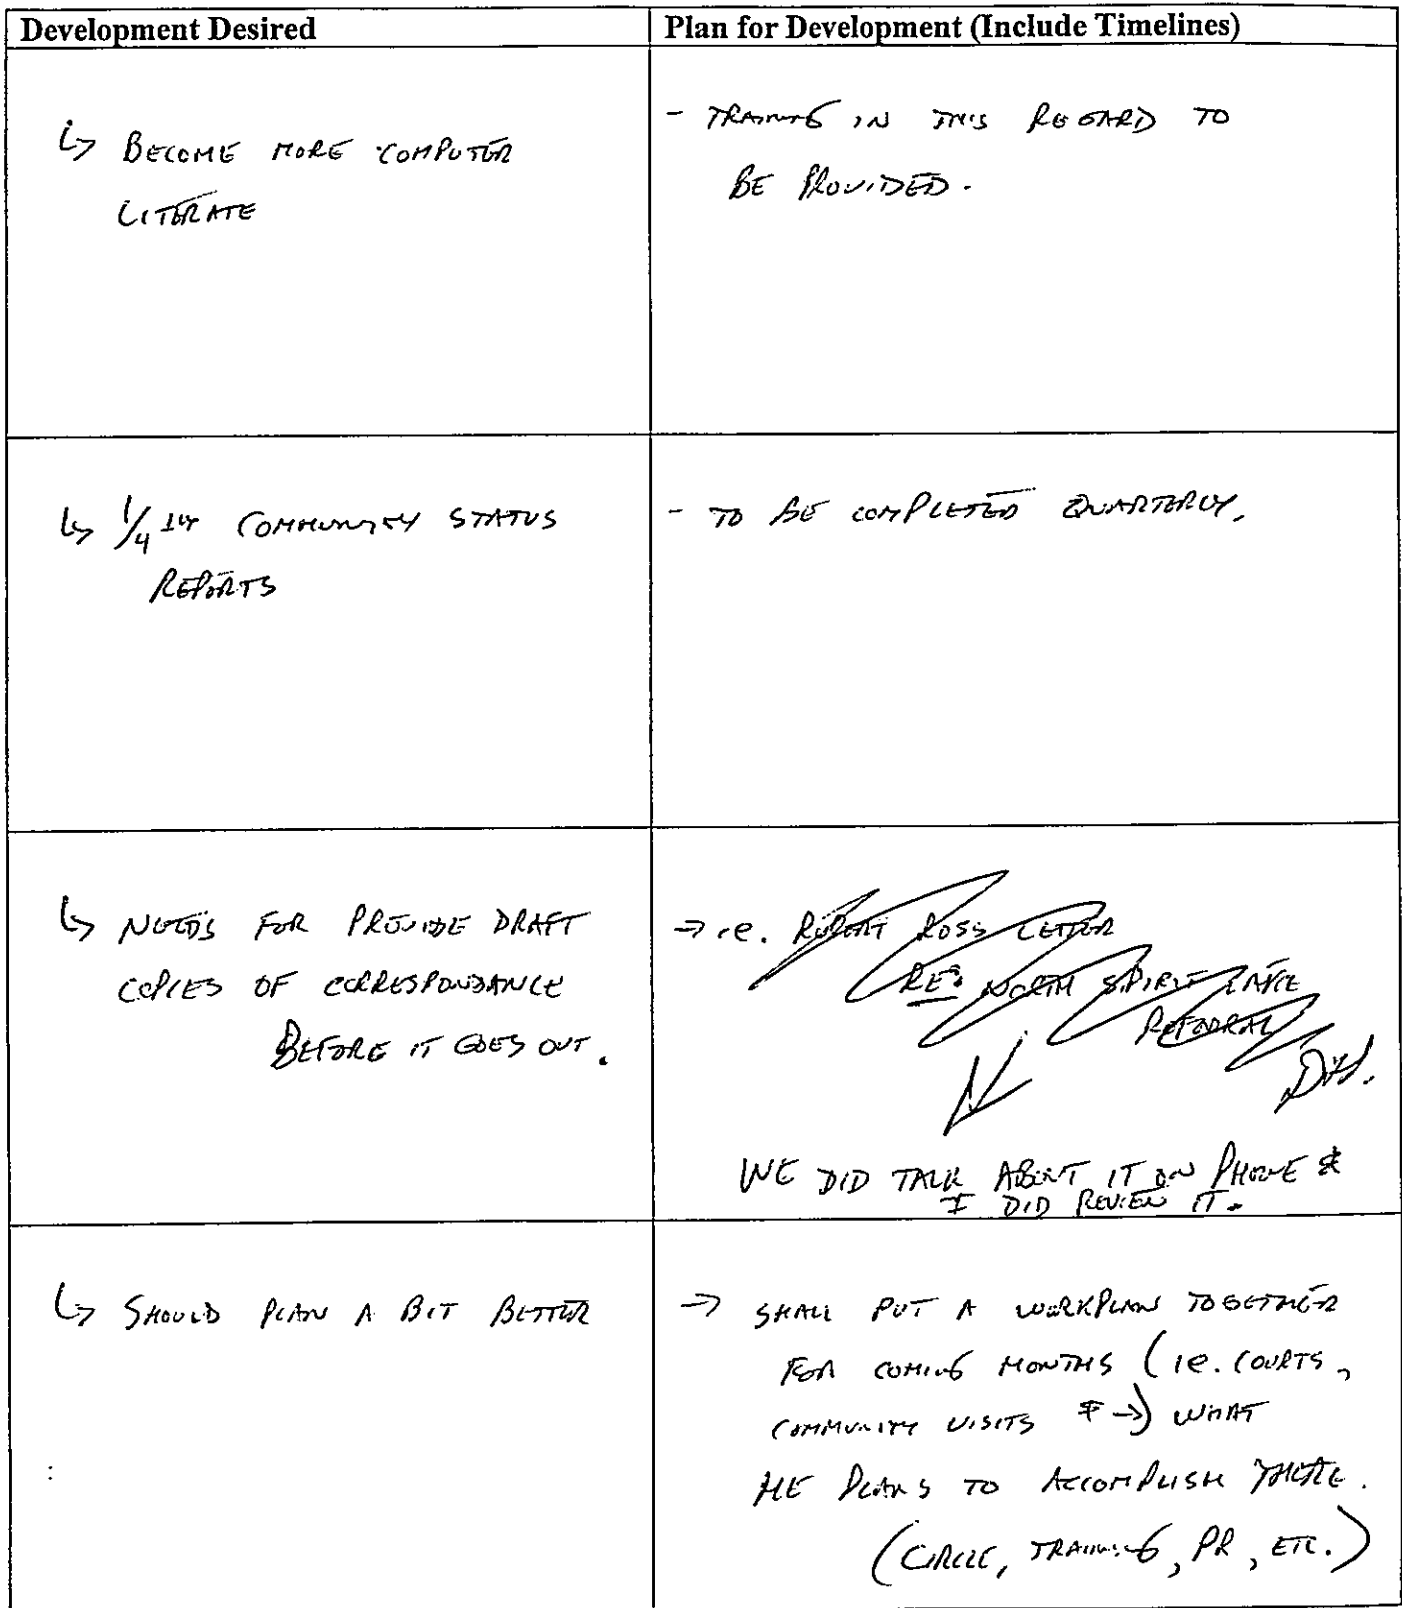 Development Desired
Plan for Development (Include Timelines)
↳ BECOME MORE COMPUTER
LITERATE
- TRAINING IN THIS REGARD TO
BE PROVIDED.
↳ 1/4 ly COMMUNITY STATUS
REPORTS
- TO BE COMPLETED QUARTERLY.
↳ NEEDS FOR PROVIDE DRAFT
COPIES OF CORRESPONDANCE
BEFORE IT GOES OUT.
→ ie. RUPERT ROSS LETTER
RE: NORTH SPIRIT LAKE
REFERRAL
WE DID TALK ABOUT IT ON PHONE &
I DID REVIEW IT.
↳ SHOULD PLAN A BIT BETTER
→ SHALL PUT A WORKPLAN TOGETHER
FOR COMING MONTHS (ie. COURTS,
COMMUNITY VISITS & →) WHAT
HE PLANS TO ACCOMPLISH THERE.
(CIRCLE, TRAINING, PR, ETC.)